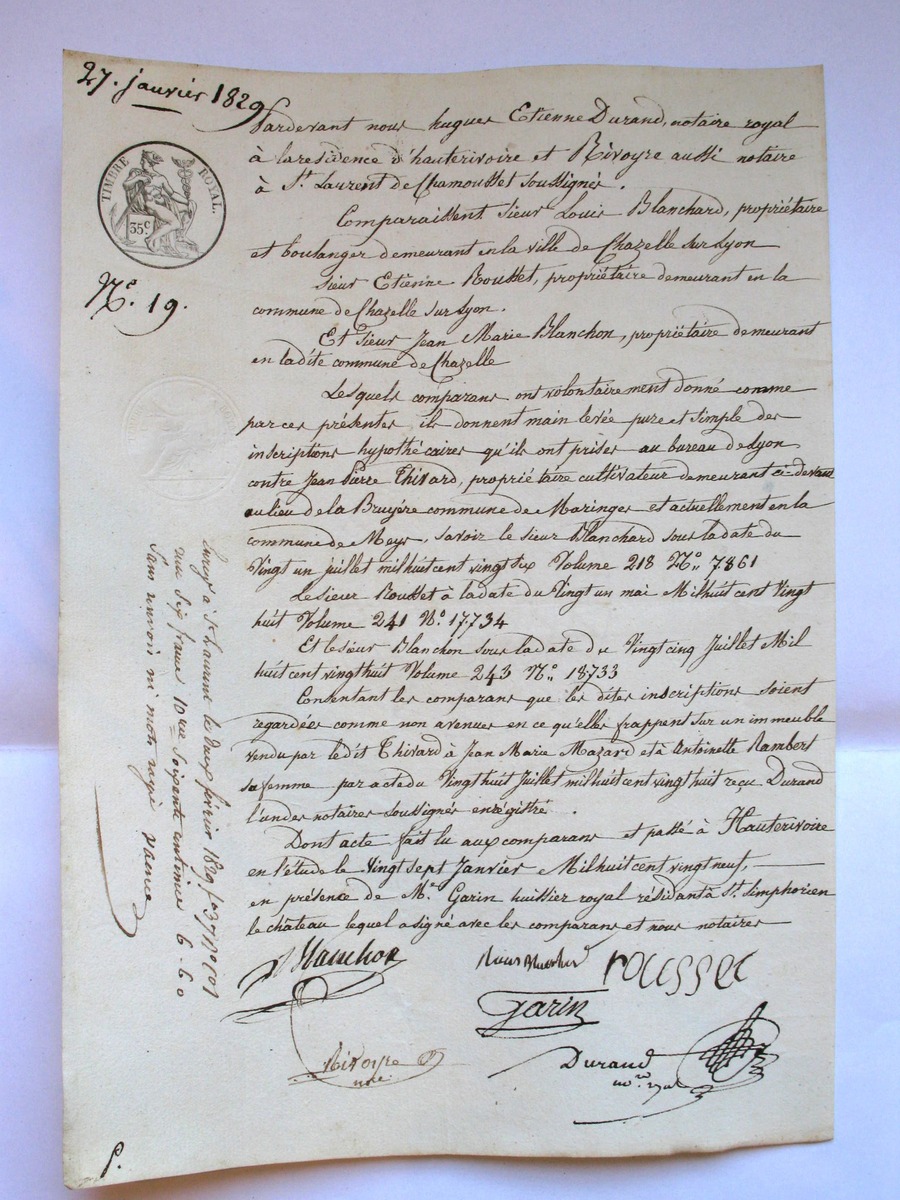 27. janvier 1829
TIMBRE ROYAL.
35c.
No. 19.
Pardevant nous hugues Etienne Durand, notaire royal
à la residence d'hauterivoire et Rivoyre aussi notaire
à St. Laurent de Chamousset soussignés.
Comparaissent Sieur Louis Blanchard, propriétaire
et boulanger demeurant en la ville de Chazelle sur Lyon
Sieur Etienne Rousset, propriétaire demeurant en la
commune de Chazelle sur Lyon.
Et Sieur Jean Marie Blanchon, propriétaire demeurant
en ladite commune de Chazelle
Lesquels comparans, ont volontairement donné comme
par ces présentes ils donnent main levée pure et simple des
inscriptions hypothécaires qu'ils ont prises au bureau de Lyon
contre Jean Pierre Thivard, propriétaire cultivateur demeurant ci-devant
au lieu de la Bruyére commune de Maringes et actuellement en la
commune de Meys, savoir le sieur Blanchard sous la date du
Vingt un juillet mil huit cent vingt six Volume 218 No. 7861
Le sieur Rousset à la date du Vingt un mai Mil huit cent Vingt
huit Volume 241 No. 17734
Et le sieur Blanchon sous la date du Vingt cinq Juillet Mil
huit cent vingt huit Volume 243 No. 18733
Consentant les comparans que les dites inscriptions soient
regardées comme non avenues en ce qu'elles frappent sur un immeuble
vendu par ledit Thivard à Jean Marie Mazard et à Antoinette Rambert
sa femme par acte du Vingt huit Juillet mil huit cent vingt huit reçu Durand
l'un des notaires soussignés enregistré.
Dont acte fait lu aux comparans et passé à Hauterivoire
en l'étude le Vingt sept Janvier Mil huit cent vingt neuf.
en présence de Me. Garin huissier royal résidant à St. Simphorien
le château lequel a signé avec les comparans et nous notaires
Blanchon
rousset
Garin
Rivoyre
nre
Durand
nore. royal
à St. Laurent le deux février 1829
six francs 10me soixante centimes 6-60
Sans renvoi ni mots rayé
P.